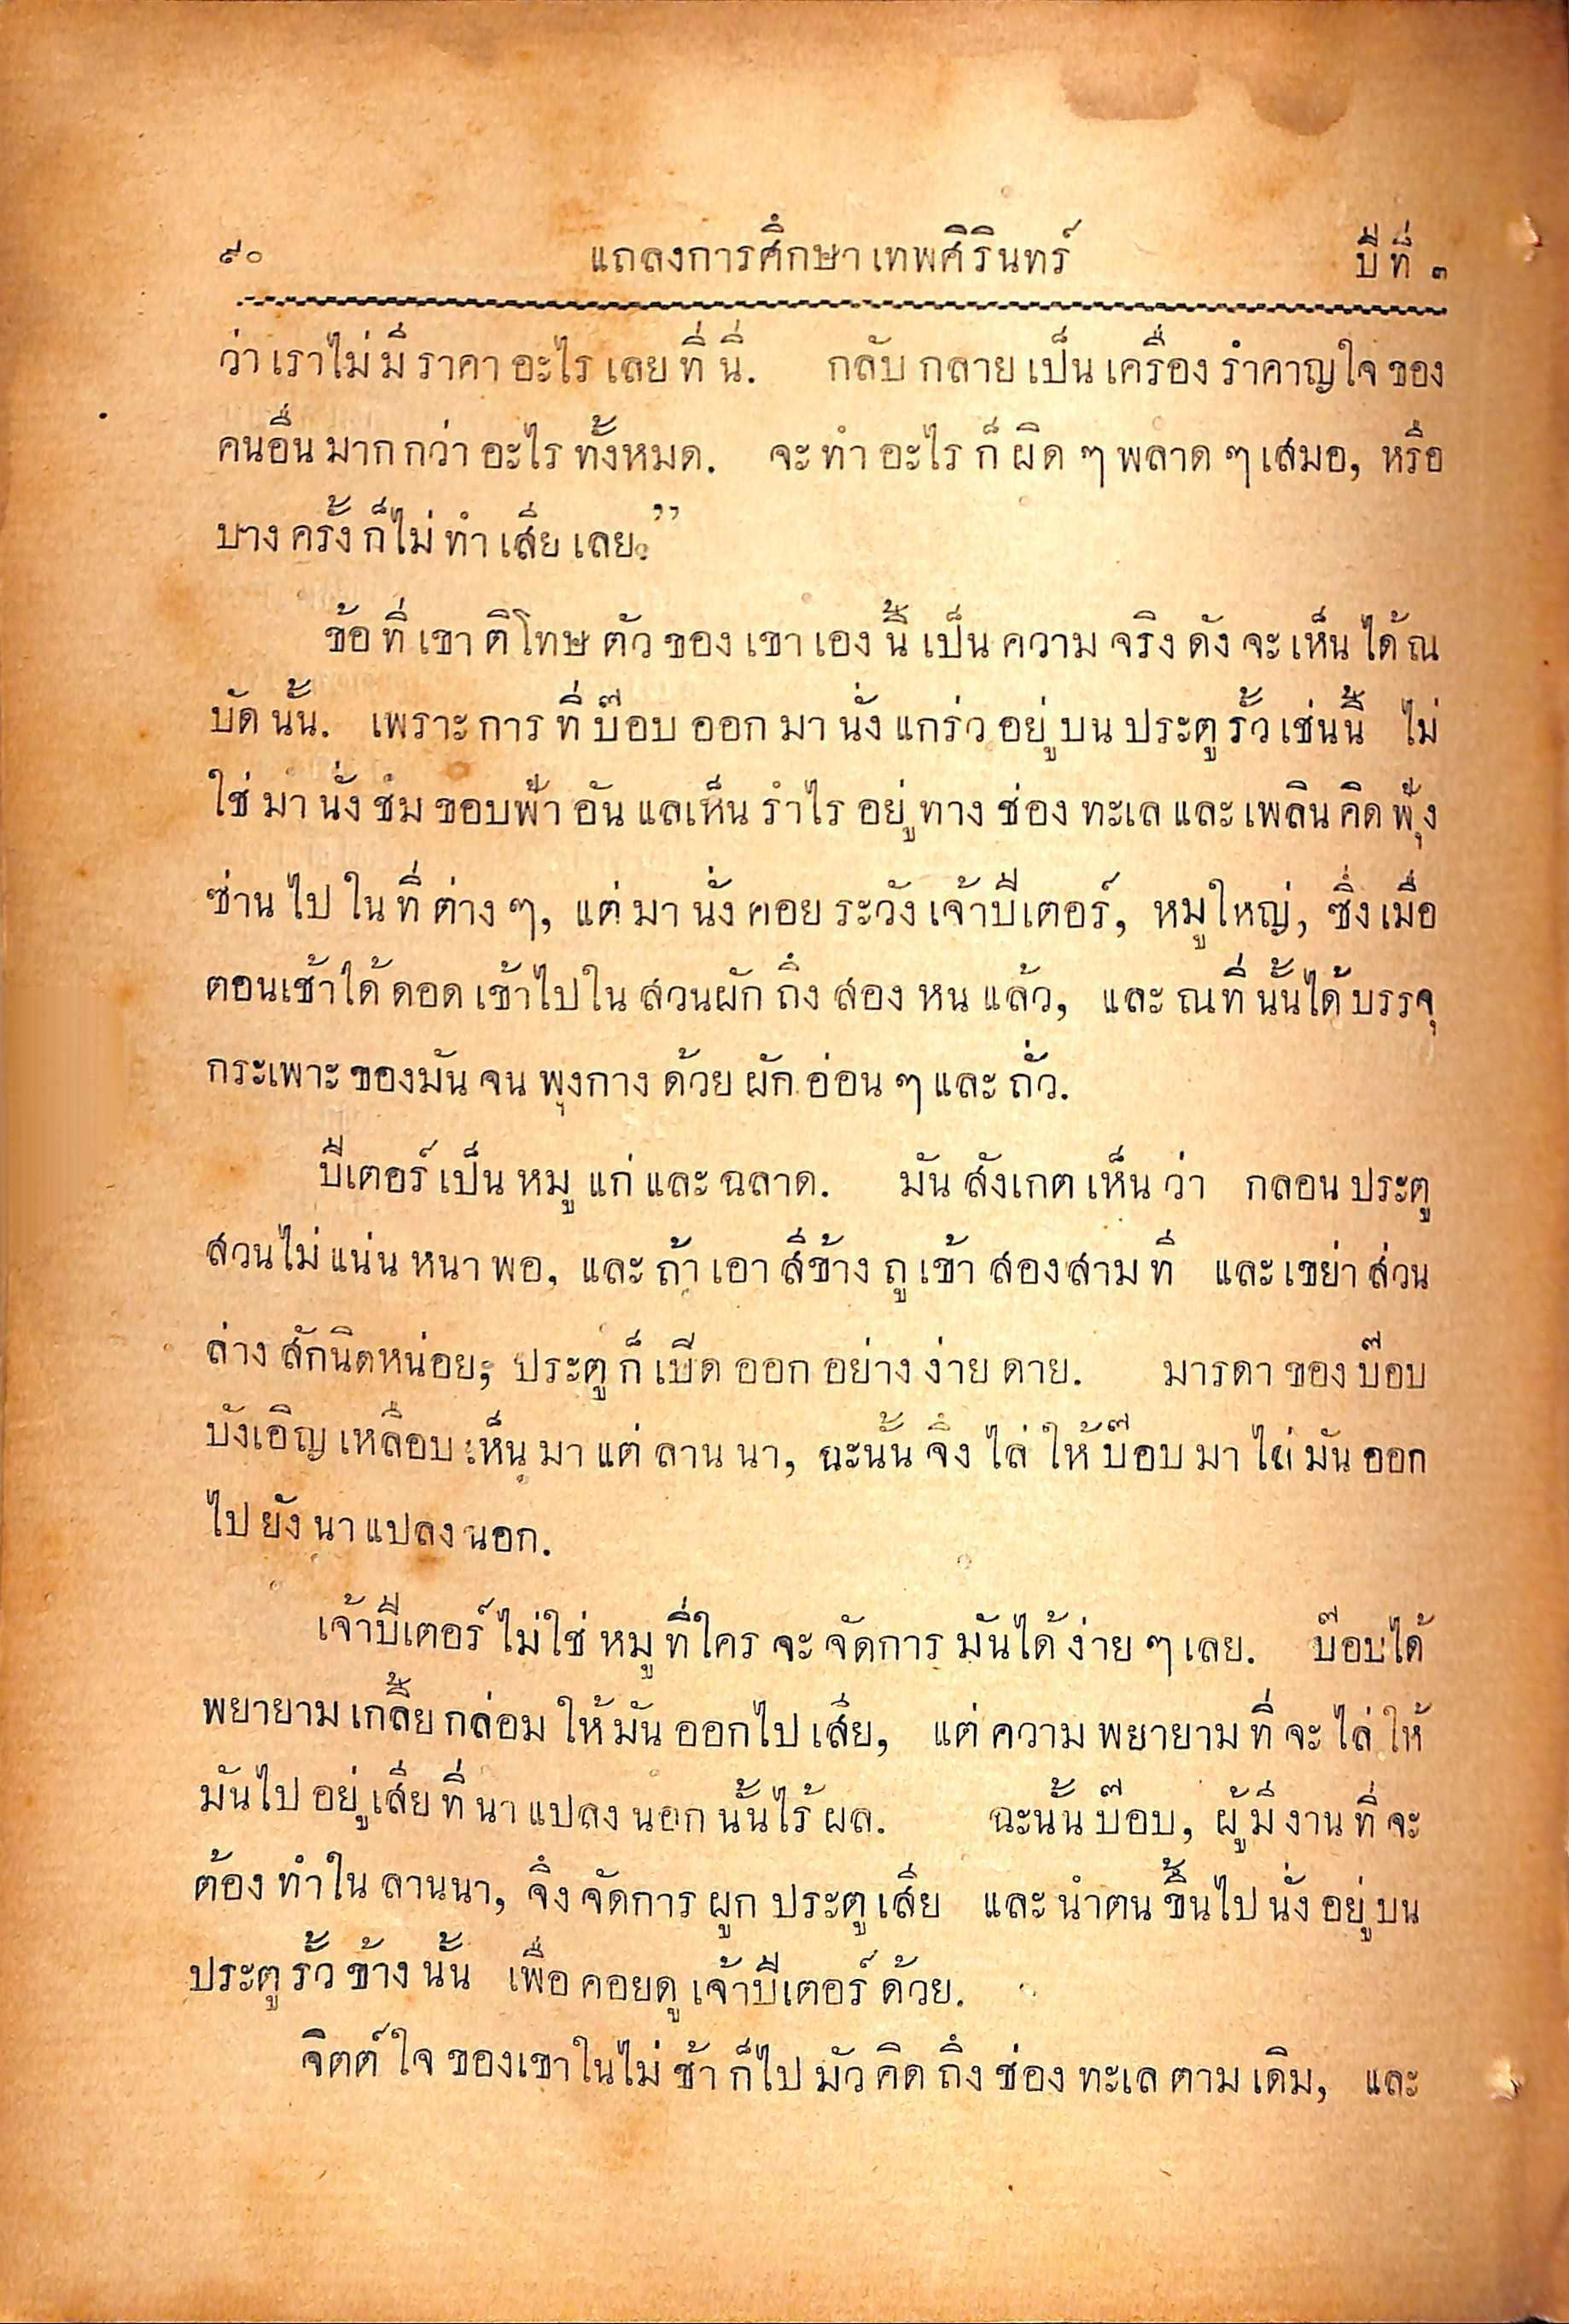 ๙๐ แถลงการศึกษาเทพศิรินทร์ ปีที่ ๓
ว่าเราไม่มีราคาอะไรเลยที่นี่. กลับกลายเป็นเครื่องรำคาญใจของ
คนอื่นมากกว่าอะไรทั้งหมด. จะทำอะไรก็ผิด ๆ พลาด ๆ เสมอ, หรือ
บางครั้งก็ไม่ทำเสียเลย.”
ข้อที่เขาติโทษตัวของเขาเองนี้เป็นความจริงดังจะเห็นได้ณ
บัดนั้น. เพราะการที่บ๊อบออกมานั่งแกร่วอยู่บนประตูรั้วเช่นนี้ ไม่
ใช่มานั่งชมขอบฟ้าอันแลเห็นรำไรอยู่ทางช่องทะเลและเพลินคิดฟุ้ง
ซ่านไปในที่ต่าง ๆ, แต่มานั่งคอยระวังเจ้าปีเตอร์, หมูใหญ่, ซึ่งเมื่อ
ตอนเช้าได้ดอดเข้าไปในสวนผักถึงสองหนแล้ว, และณที่นั้นได้บรรจุ
กระเพาะของมันจนพุงกางด้วยผักอ่อน ๆ และถั่ว.
ปีเตอร์เป็นหมูแก่และฉลาด. มันสังเกตเห็นว่า กลอนประตู
สวนไม่แน่นหนาพอ, และถ้าเอาสีข้างถูเข้าสองสามที และเขย่าส่วน
ล่างสักนิดหน่อย; ประตูก็เปิดออกอย่างง่ายดาย. มารดาของบ๊อบ
บังเอิญเหลือบเห็นมาแต่ลานนา, ฉะนั้นจึงไล่ให้บ๊อบมาไล่มันออก
ไปยังนาแปลงนอก.
เจ้าปีเตอร์ไม่ใช่หมูที่ใครจะจัดการมันได้ง่าย ๆ เลย. บ๊อบได้
พยายามเกลี้ยกล่อมให้มันออกไปเสีย, แต่ความพยายามที่จะไล่ให้
มันไปอยู่เสียที่นาแปลงนอกนั้นไร้ผล. ฉะนั้นบ๊อบ, ผู้มีงานที่จะ
ต้องทำในลานนา, จึงจัดการผูกประตูเสีย และนำตนขึ้นไปนั่งอยู่บน
ประตูรั้วข้างนั้น เพื่อคอยดูเจ้าปีเตอร์ด้วย.
จิตต์ใจของเขาในไม่ช้าก็ไปมัวคิดถึงช่องทะเลตามเดิม, และ